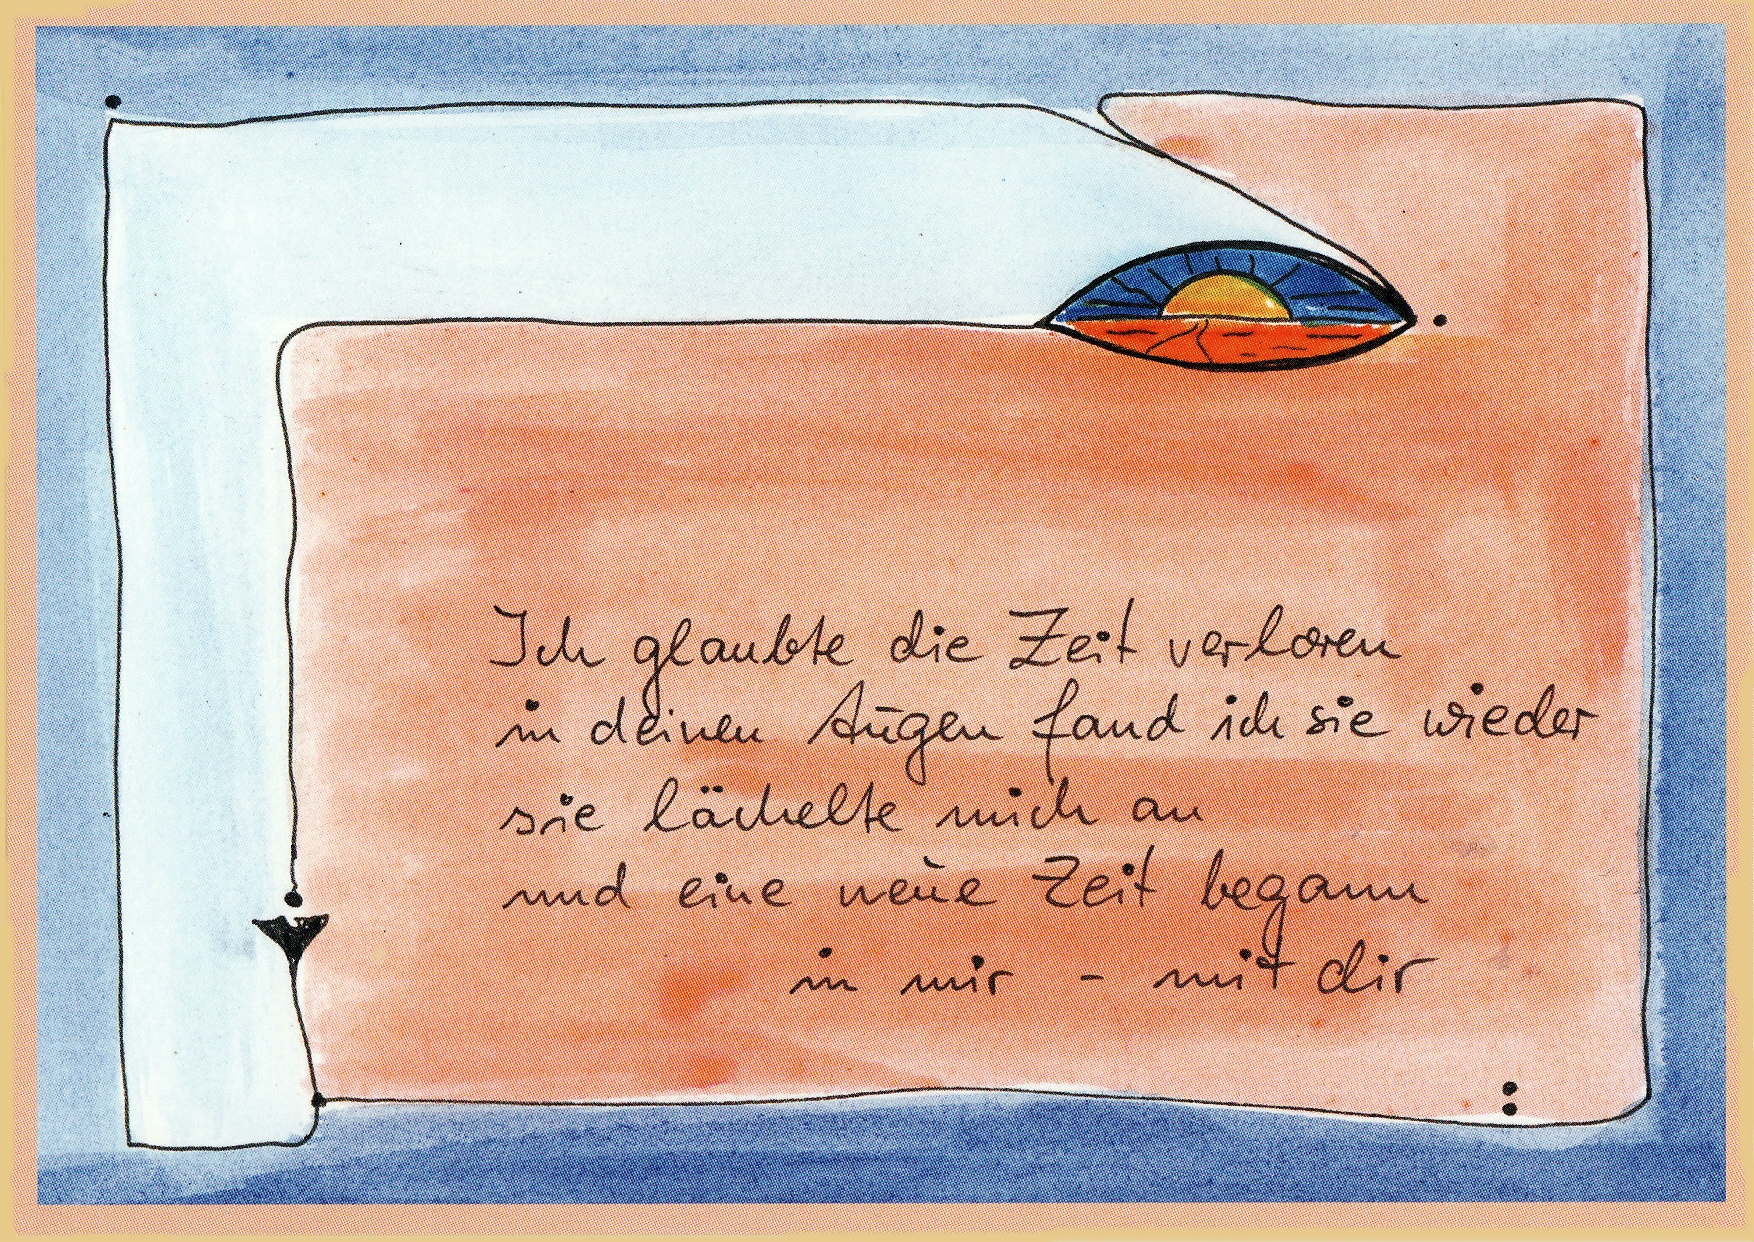 Ich glaubte die Zeit verloren
in deinen Augen fand ich sie wieder
sie lächelte mich an
und eine neue Zeit begann
in mir - mit dir